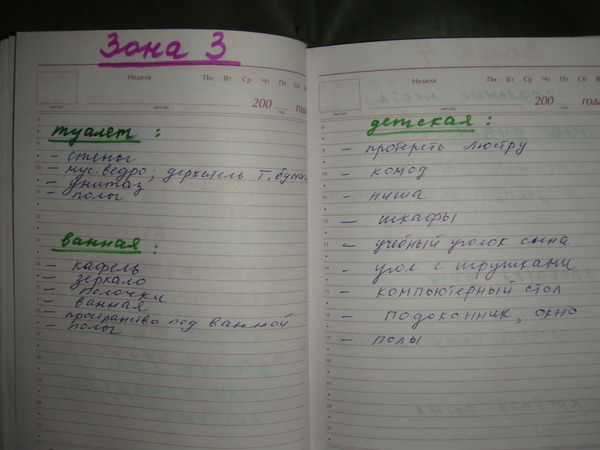 Зона 3
Неделя Пн Вт Ср Чт Пт Сб
число месяц 200 год
туалет :
– стены
– мус. ведро; держатель т. бум.
– унитаз
– полы
ванная :
– кафель
– зеркало
– полочки
– ванная
– пространство под ванной
– полы
Неделя Пн Вт Ср Чт Пт Сб
число месяц 200 года
детская :
– протереть люстру
– комод
– ниша
– шкафы
– учебный уголок сына
– угол с игрушками
– компьютерный стол
– подоконник, окно
– полы